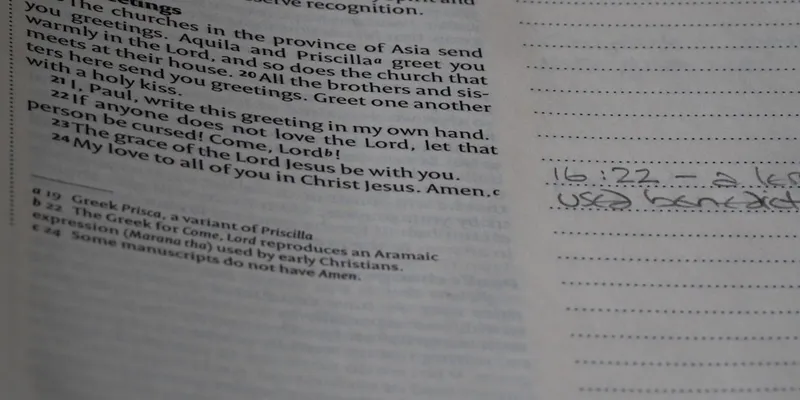 recognition.
The churches in the province of Asia send
you greetings. Aquila and Priscillaᵃ greet you
warmly in the Lord, and so does the church that
meets at their house. 20 All the brothers and sis-
ters here send you greetings. Greet one another
with a holy kiss.
21 I, Paul, write this greeting in my own hand.
22 If anyone does not love the Lord, let that
person be cursed! Come, Lordᵇ!
23 The grace of the Lord Jesus be with you.
24 My love to all of you in Christ Jesus. Amen.ᶜ
a 19 Greek Prisca, a variant of Priscilla
b 22 The Greek for Come, Lord reproduces an Aramaic
expression (Marana tha) used by early Christians.
c 24 Some manuscripts do not have Amen.
16:22 – a
used